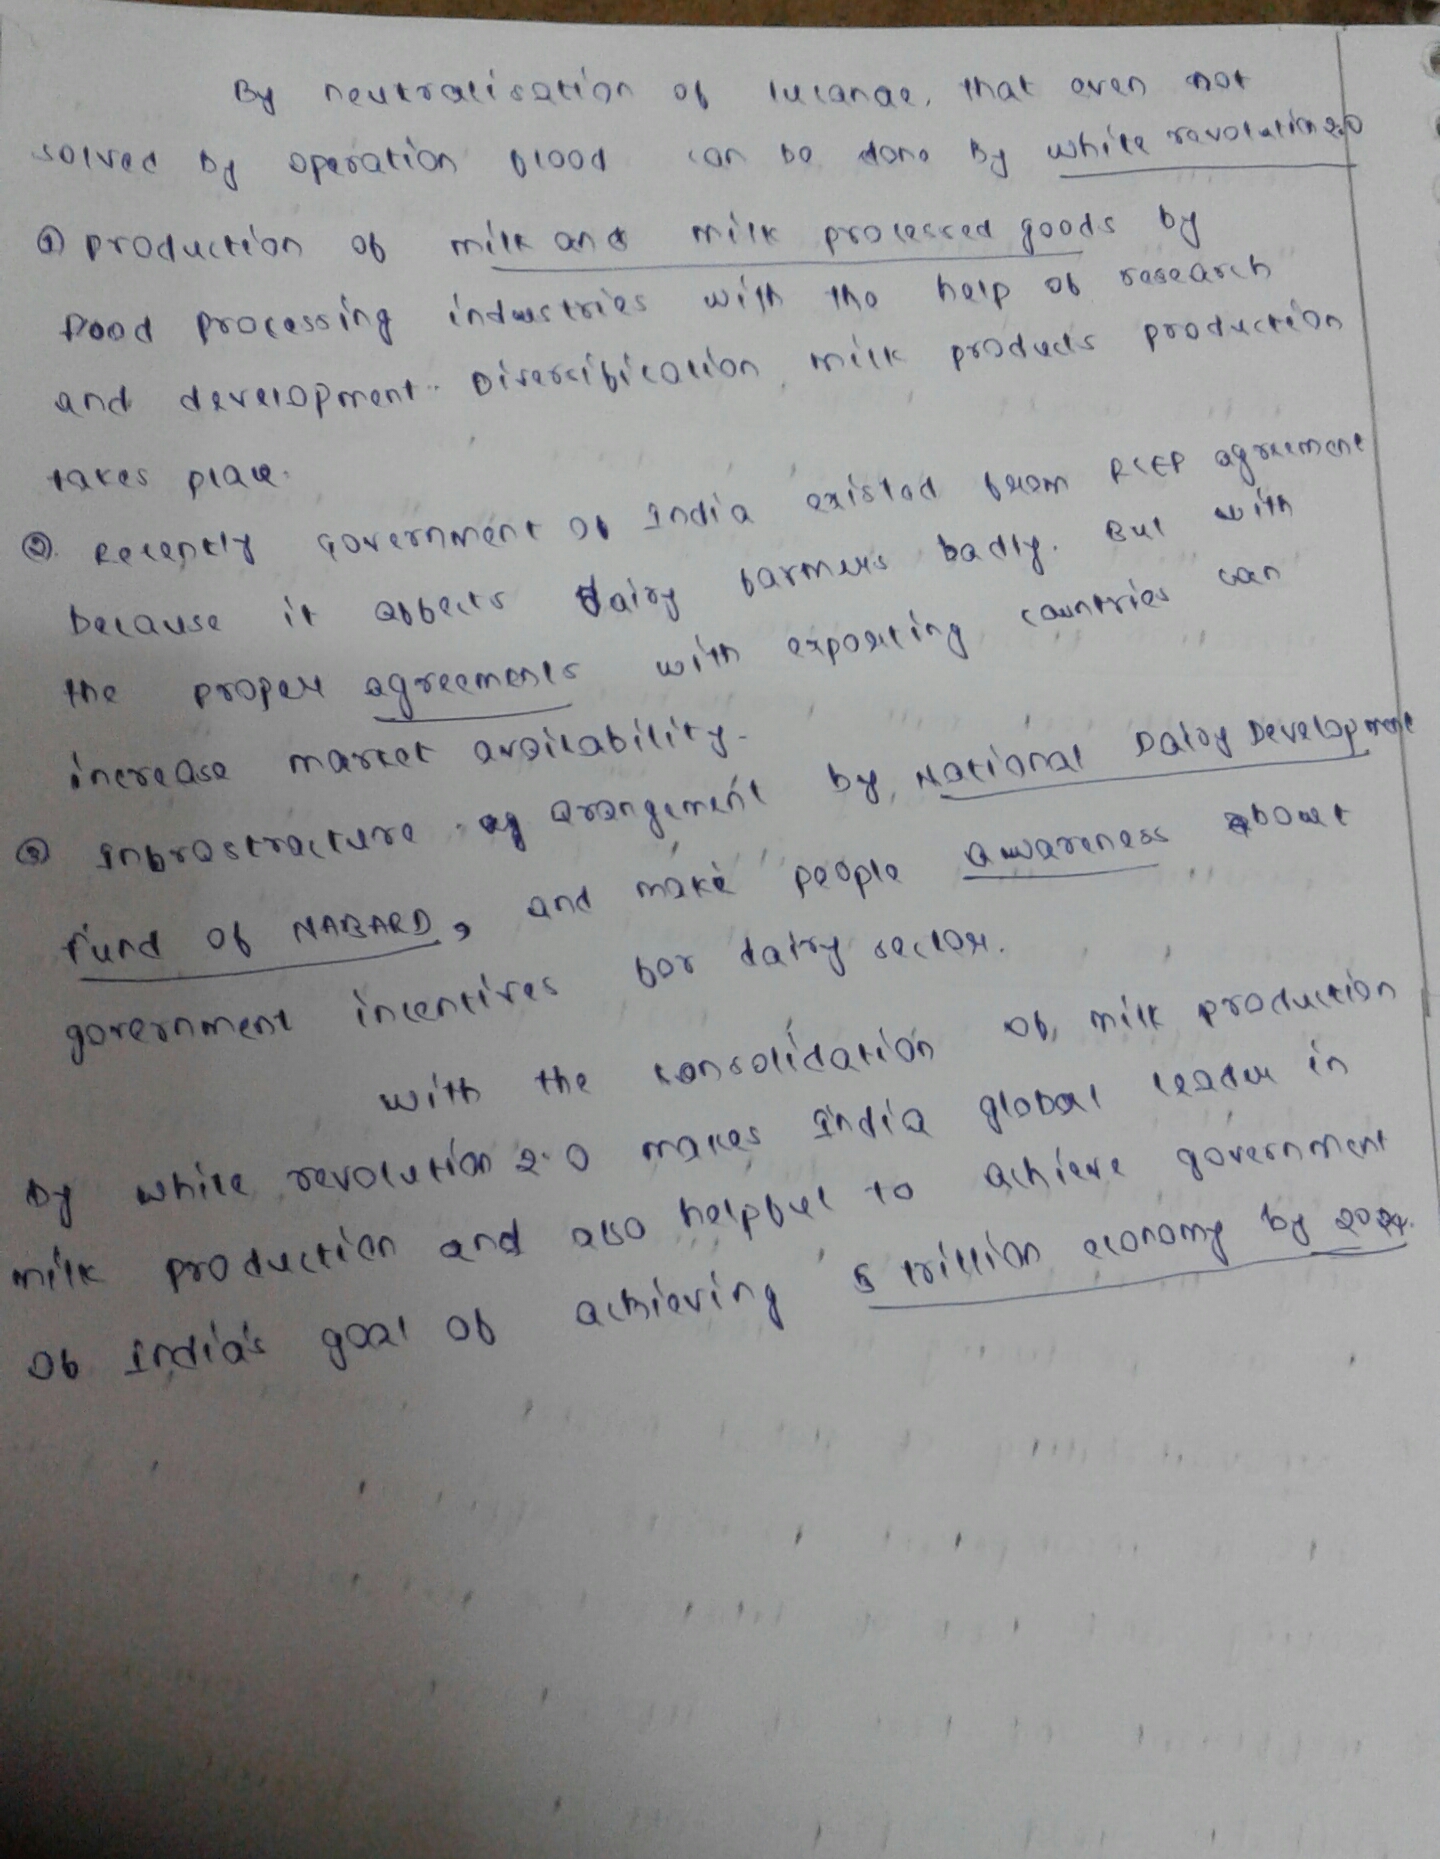 By neutralisation of lucanae, that even not
solved by operation flood can be done by white revolution 2.0
① production of milk and milk processed goods by
Food processing industries with the help of research
and development. Diversification milk products production
takes place.
②. Recently Government of India existed from RCEP agreement
because it affects dairy farmers badly. But with
the proper agreements with exporting countries can
increase market availability.
③ Infrastructure arangement by National Dairy Development
fund of NABARD, and make people awareness about
government incentives for dairy sector.
with the consolidation of milk production
by white revolution 2.0 makes India global leader in
milk production and also helpful to achieve government
of India's goal of achieving 5 trillion economy by 2024.